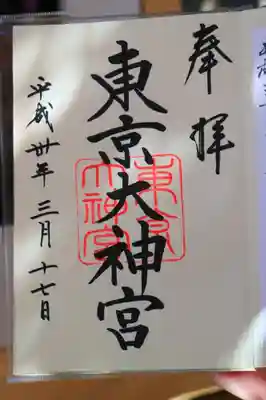 奉拝
東京大神宮
東京
大神宮
平成卅年三月十七日